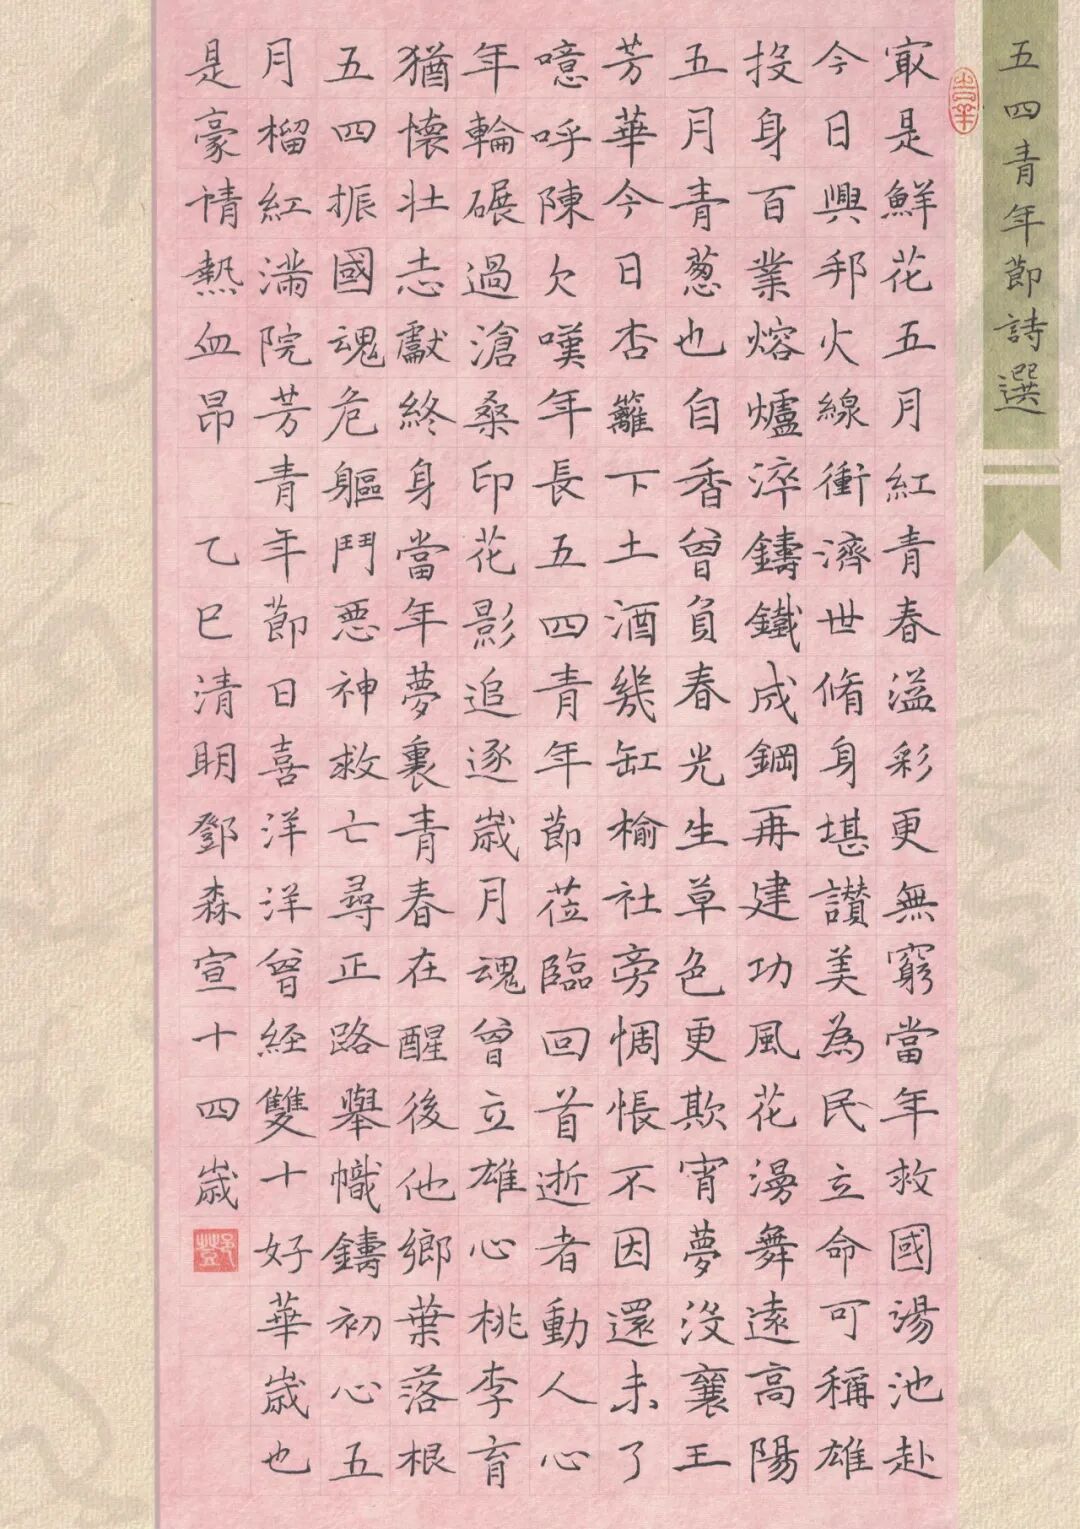 五四青年節詩選
冣是鮮花五月紅青春溢彩更無窮當年救國湯池赴
今日興邦火線衝濟世脩身堪讃美為民立命可稱雄
投身百業熔爐淬鑄鐵成鋼再建功風花漫舞遠高陽
五月青葱也自香曾負春光生草色更欺宵夢没襄王
芳華今日杏籬下土酒幾缸榆社旁惆悵不因還未了
噫呼陳欠嘆年長五四青年節莅臨回首逝者動人心
年輪碾過滄桑印花影追逐歲月魂曾立雄心桃李育
猶懷壯志獻終身當年夢裏青春在醒後他鄉葉落根
五四振國魂危軀鬥惡神救亡尋正路舉幟鑄初心五
月榴紅滿院芳青年節日喜洋洋曾經雙十好華歲也
是豪情熱血昂 乙巳清明鄧森宣十四歲